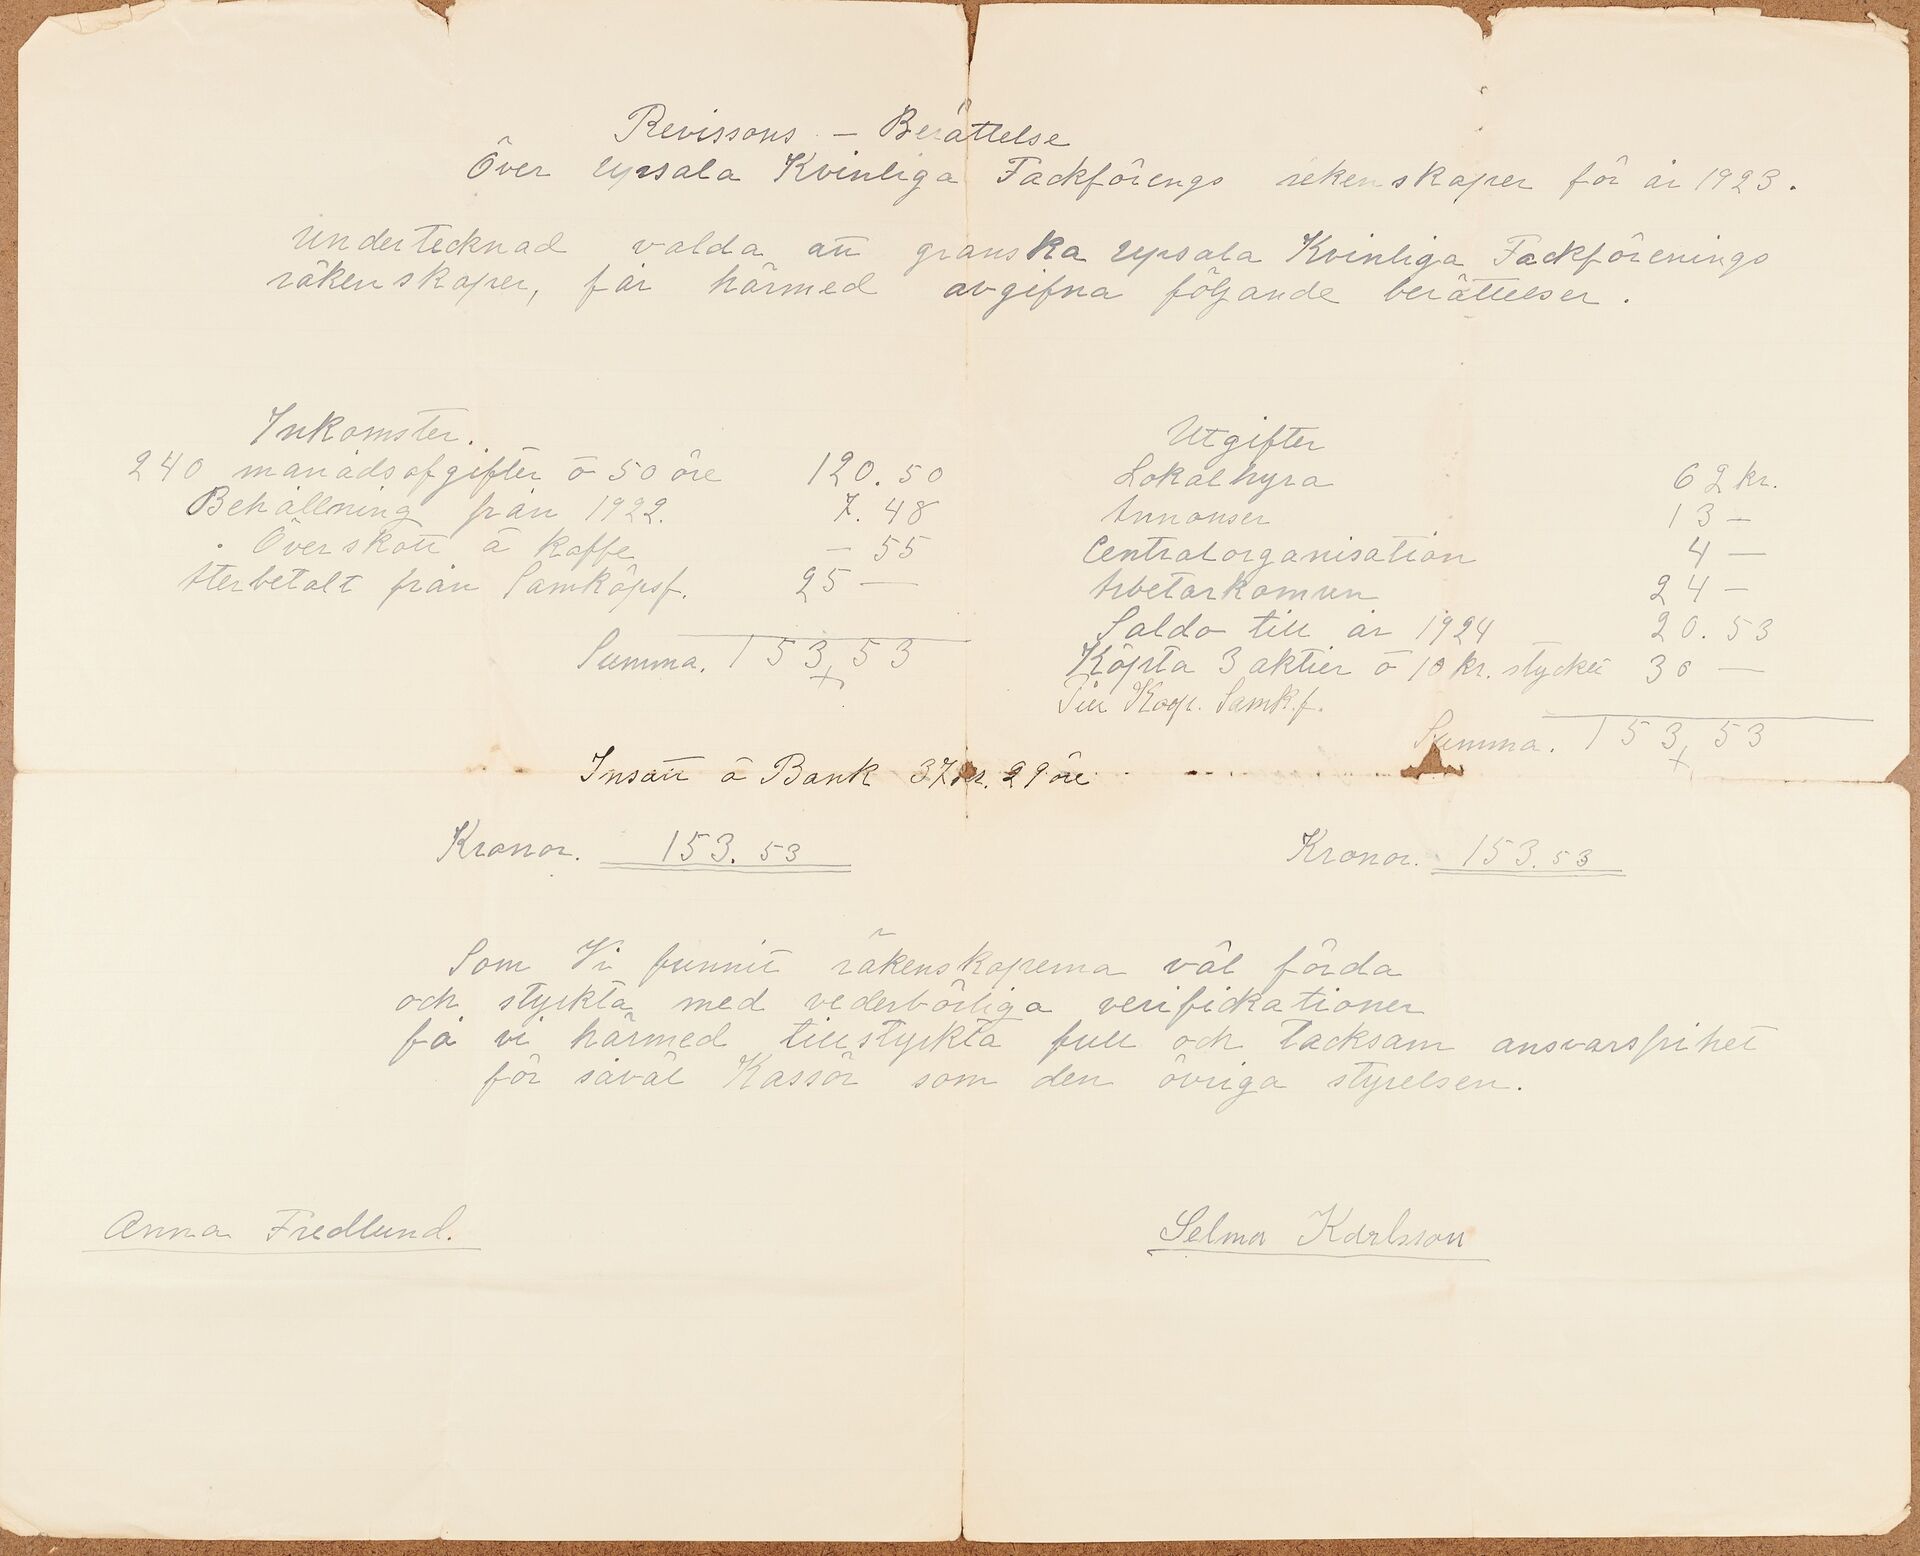 Revissons - Berättelse
Över Upsala Kvinliga Fackförengs rekenskaper för år 1923.
Undertecknad valda att granska Upsala Kvinliga Fackförenings
räkenskaper, får härmed avgifna följande berättelser.
Inkomster.
240 månadsafgifter á 50 öre 120.50
Behållning från 1922. 7.48
Överskott å kaffe — 55
Återbetalt från Samköpsf. 25 —
Summa. 153,53
Utgifter
Lokalhyra 62 kr.
Annonser 13 —
Centralorganisation 4 —
Arbetarkomun 24 —
Saldo till år 1924 20.53
Köpta 3 aktier á 10 kr. stycket 30 —
Till Kop. Samk.f.
Summa. 153,53
Insatt å Bank 37 kr. 29 öre
Kronor. 153.53
Kronor. 153.53
Som Vi funnit räkenskaperna väl förda
och styrkta med vederbörliga verifickationer
få vi härmed tillstyrkta full och tacksam ansvarsfrihet
för såväl Kassör som den övriga styrelsen.
Anna Fredlund.
Selma Karlsson